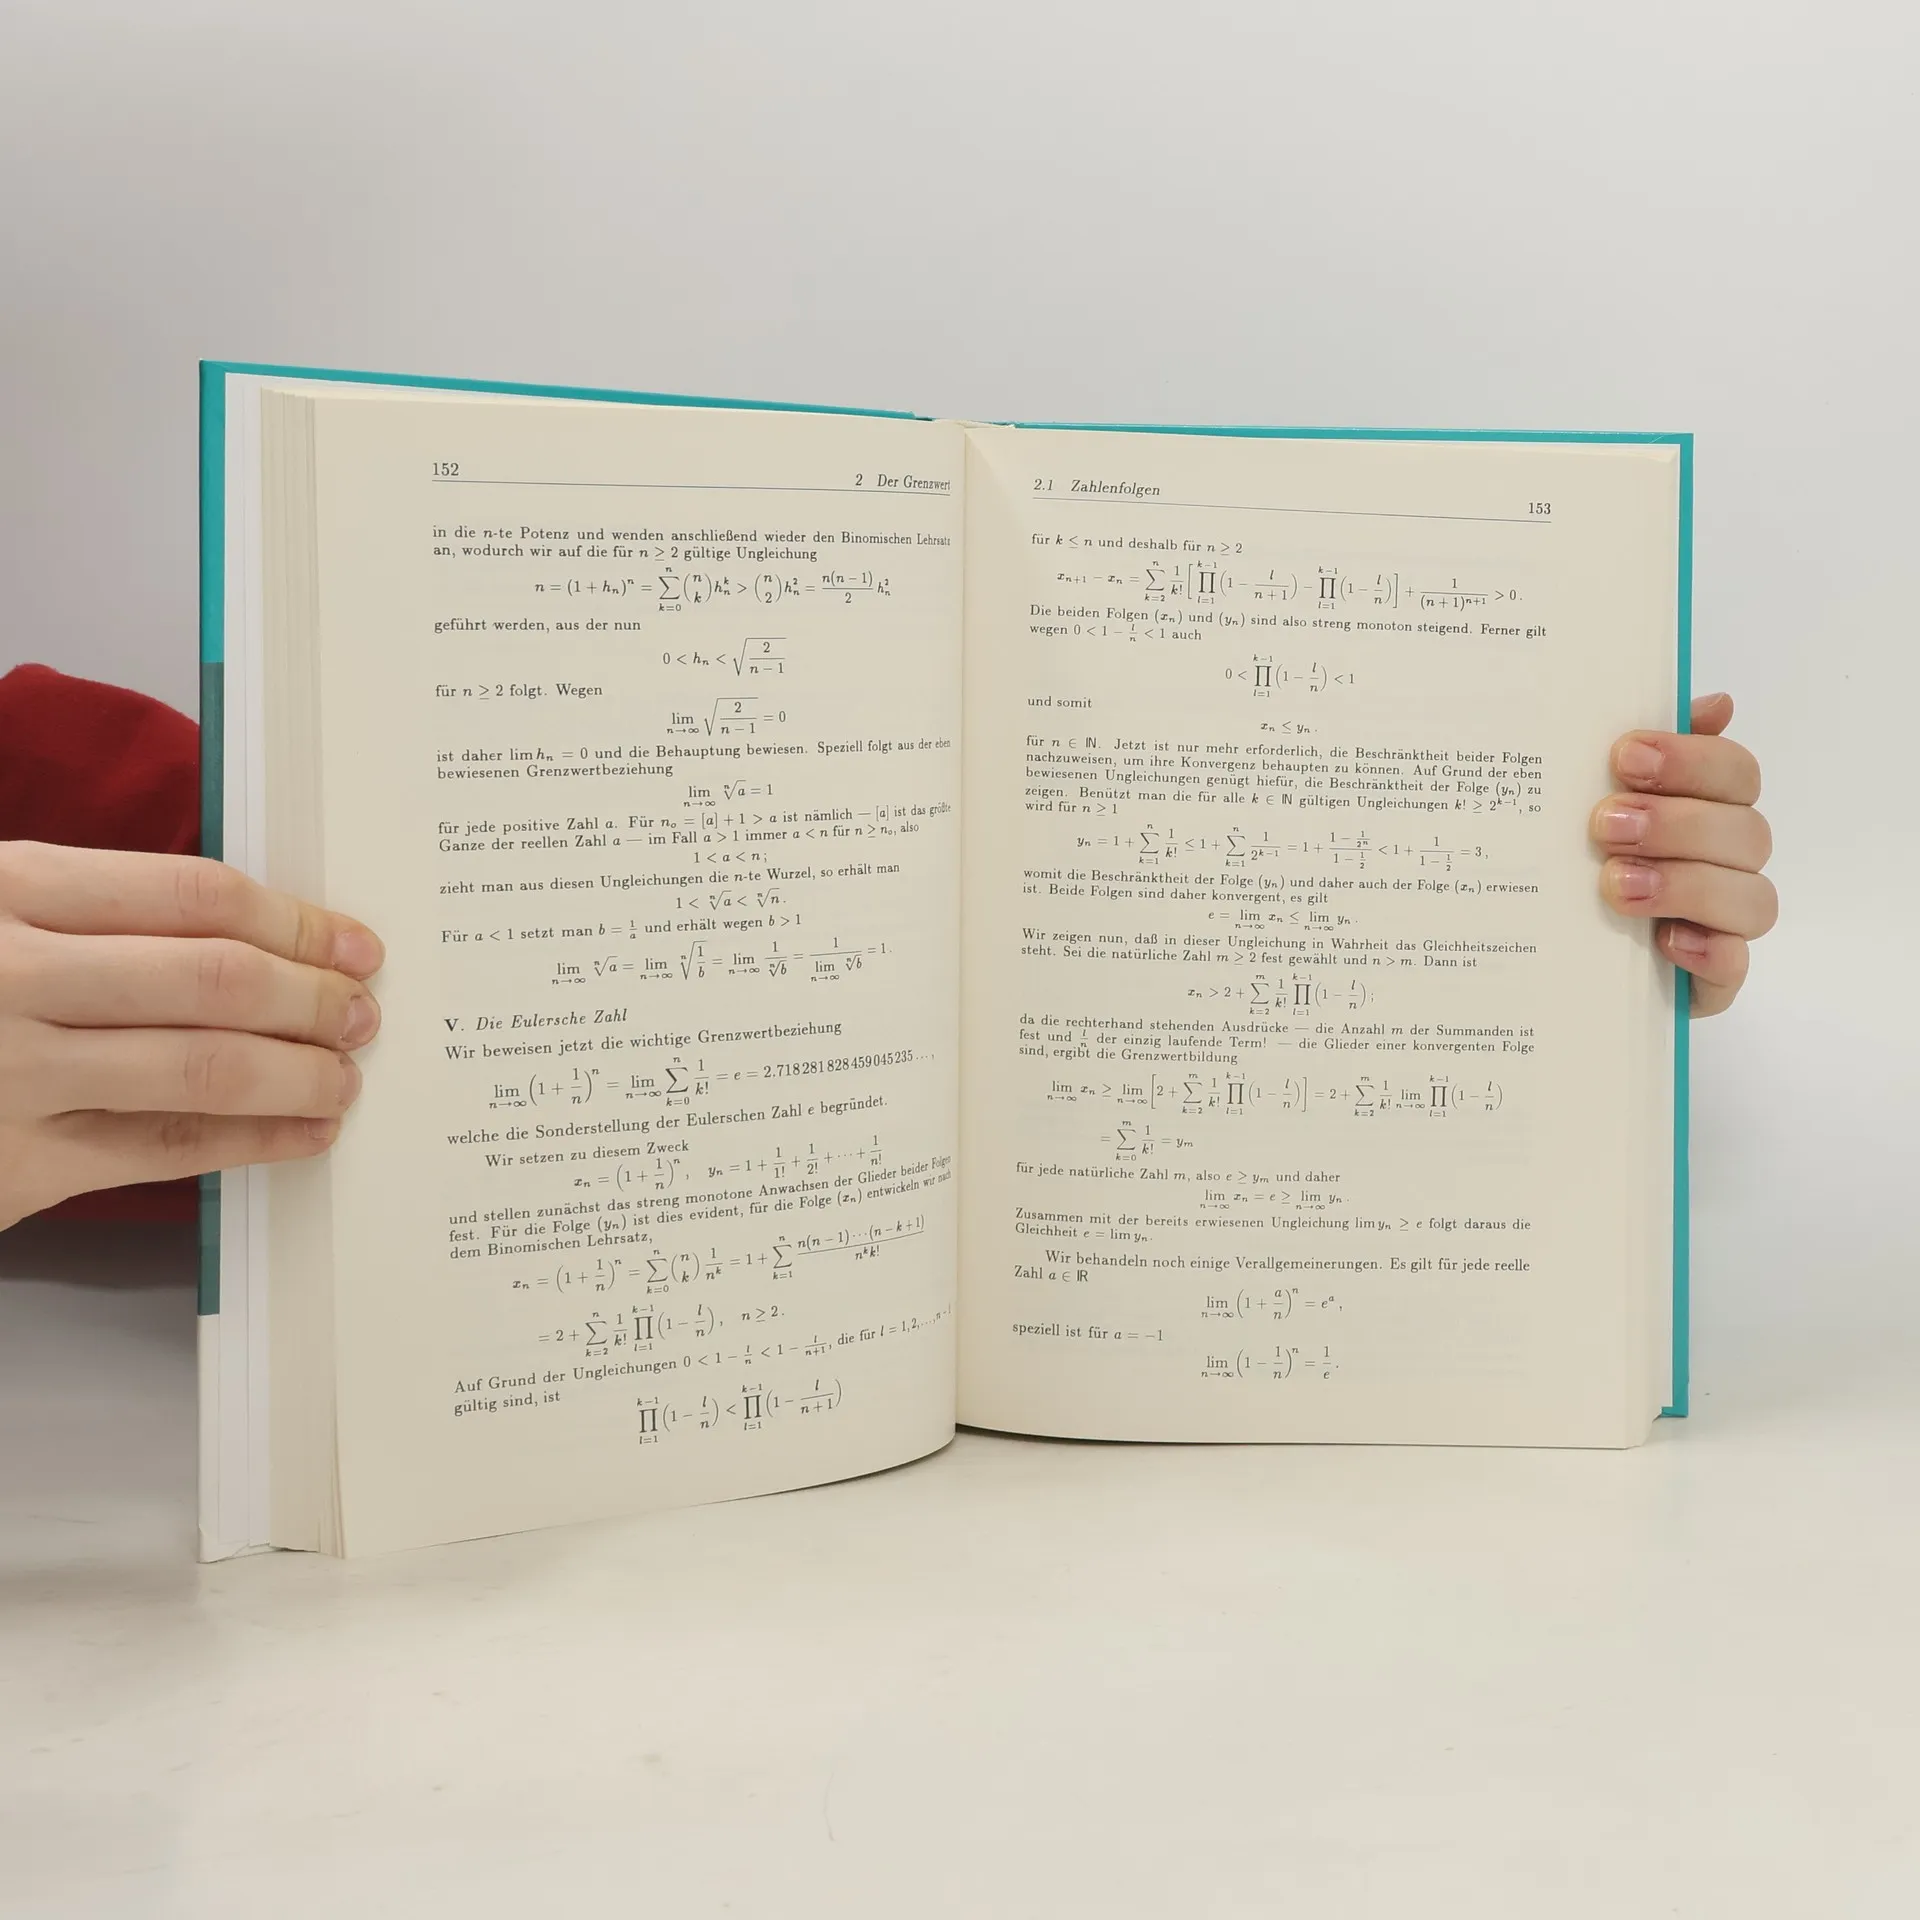 152
2 Der Grenzwert
in die n-te Potenz und wenden anschließend wieder den Binomischen Lehrsatz
an, wodurch wir auf die für n ≥ 2 gültige Ungleichung
n = (1 + hₙ)ⁿ = ∑_{k=0}^{n} \binom{n}{k} hₙᵏ > \binom{n}{2} hₙ² = \frac{n(n − 1)}{2} hₙ²
geführt werden, aus der nun
0 < hₙ < \sqrt{\frac{2}{n − 1}}
für n ≥ 2 folgt. Wegen
lim_{n→∞} \sqrt{\frac{2}{n − 1}} = 0
ist daher lim hₙ = 0 und die Behauptung bewiesen. Speziell folgt aus der eben
bewiesenen Grenzwertbeziehung
lim_{n→∞} \sqrt[n]{a} = 1
für jede positive Zahl a. Für nₒ = [a] + 1 > a ist nämlich — [a] ist das größte
Ganze der reellen Zahl a — im Fall a > 1 immer a < n für n ≥ nₒ, also
1 < a < n ;
zieht man aus diesen Ungleichungen die n-te Wurzel, so erhält man
1 < \sqrt[n]{a} < \sqrt[n]{n} .
Für a < 1 setzt man b = \frac{1}{a} und erhält wegen b > 1
lim_{n→∞} \sqrt[n]{a} = lim_{n→∞} \sqrt[n]{\frac{1}{b}} = lim_{n→∞} \frac{1}{\sqrt[n]{b}} = \frac{1}{lim_{n→∞} \sqrt[n]{b}} = 1 .
V. Die Eulersche Zahl
Wir beweisen jetzt die wichtige Grenzwertbeziehung
lim_{n→∞} (1 + \frac{1}{n})ⁿ = lim_{n→∞} ∑_{k=0}^{n} \frac{1}{k!} = e = 2.718281828459045235... ,
welche die Sonderstellung der Eulerschen Zahl e begründet.
Wir setzen zu diesem Zweck
xₙ = (1 + \frac{1}{n})ⁿ , yₙ = 1 + \frac{1}{1!} + \frac{1}{2!} + ··· + \frac{1}{n!}
und stellen zunächst das streng monotone Anwachsen der Glieder beider Folgen
fest. Für die Folge (yₙ) ist dies evident, für die Folge (xₙ) entwickeln wir nach
dem Binomischen Lehrsatz,
xₙ = (1 + \frac{1}{n})ⁿ = ∑_{k=0}^{n} \binom{n}{k} \frac{1}{nᵏ} = 1 + ∑_{k=1}^{n} \frac{n(n − 1)···(n − k + 1)}{nᵏ k!}
= 2 + ∑_{k=2}^{n} \frac{1}{k!} ∏_{l=1}^{k−1} (1 − \frac{l}{n}) , n ≥ 2 .
Auf Grund der Ungleichungen 0 < 1 − \frac{l}{n} < 1 − \frac{l}{n+1}, die für l = 1, 2, ..., n − 1
gültig sind, ist
∏_{l=1}^{k−1} (1 − \frac{l}{n}) < ∏_{l=1}^{k−1} (1 − \frac{l}{n + 1})
2.1 Zahlenfolgen
153
für k ≤ n und deshalb für n ≥ 2
xₙ₊₁ − xₙ = ∑_{k=2}^{n} \frac{1}{k!} [∏_{l=1}^{k−1} (1 − \frac{l}{n + 1}) − ∏_{l=1}^{k−1} (1 − \frac{l}{n})] + \frac{1}{(n + 1)ⁿ⁺¹} > 0 .
Die beiden Folgen (xₙ) und (yₙ) sind also streng monoton steigend. Ferner gilt
wegen 0 < 1 − \frac{l}{n} < 1 auch
0 < ∏_{l=1}^{k−1} (1 − \frac{l}{n}) < 1
und somit
xₙ ≤ yₙ .
für n ∈ ℕ. Jetzt ist nur mehr erforderlich, die Beschränktheit beider Folgen
nachzuweisen, um ihre Konvergenz behaupten zu können. Auf Grund der eben
bewiesenen Ungleichungen genügt hiefür, die Beschränktheit der Folge (yₙ) zu
zeigen. Benützt man die für alle k ∈ ℕ gültigen Ungleichungen k! ≥ 2ᵏ⁻¹, so
wird für n ≥ 1
yₙ = 1 + ∑_{k=1}^{n} \frac{1}{k!} ≤ 1 + ∑_{k=1}^{n} \frac{1}{2ᵏ⁻¹} = 1 + \frac{1 − \frac{1}{2ⁿ}}{1 − \frac{1}{2}} < 1 + \frac{1}{1 − \frac{1}{2}} = 3 ,
womit die Beschränktheit der Folge (yₙ) und daher auch der Folge (xₙ) erwiesen
ist. Beide Folgen sind daher konvergent, es gilt
e = lim_{n→∞} xₙ ≤ lim_{n→∞} yₙ .
Wir zeigen nun, daß in dieser Ungleichung in Wahrheit das Gleichheitszeichen
steht. Sei die natürliche Zahl m ≥ 2 fest gewählt und n > m. Dann ist
xₙ > 2 + ∑_{k=2}^{m} \frac{1}{k!} ∏_{l=1}^{k−1} (1 − \frac{l}{n}) ;
da die rechterhand stehenden Ausdrücke — die Anzahl m der Summanden ist
fest und \frac{l}{n} der einzig laufende Term! — die Glieder einer konvergenten Folge
sind, ergibt die Grenzwertbildung
lim_{n→∞} xₙ ≥ lim_{n→∞} [2 + ∑_{k=2}^{m} \frac{1}{k!} ∏_{l=1}^{k−1} (1 − \frac{l}{n})] = 2 + ∑_{k=2}^{m} \frac{1}{k!} lim_{n→∞} ∏_{l=1}^{k−1} (1 − \frac{l}{n})
= ∑_{k=0}^{m} \frac{1}{k!} = yₘ
für jede natürliche Zahl m, also e ≥ yₘ und daher
lim_{n→∞} xₙ = e ≥ lim_{n→∞} yₙ .
Zusammen mit der bereits erwiesenen Ungleichung lim yₙ ≥ e folgt daraus die
Gleichheit e = lim yₙ.
Wir behandeln noch einige Verallgemeinerungen. Es gilt für jede reelle
Zahl a ∈ ℝ
lim_{n→∞} (1 + \frac{a}{n})ⁿ = eᵃ ,
speziell ist für a = −1
lim_{n→∞} (1 − \frac{1}{n})ⁿ = \frac{1}{e} .